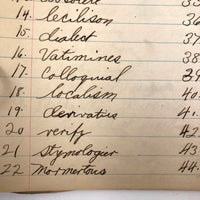 14. lecilison 36
15. dialect 37
16. Vatimines 38
17. Colloquial 39
18. localism 40.
19. derivatius 41.
20 verify 42.
21 Stymologier 43.
22 Mormertous 44.